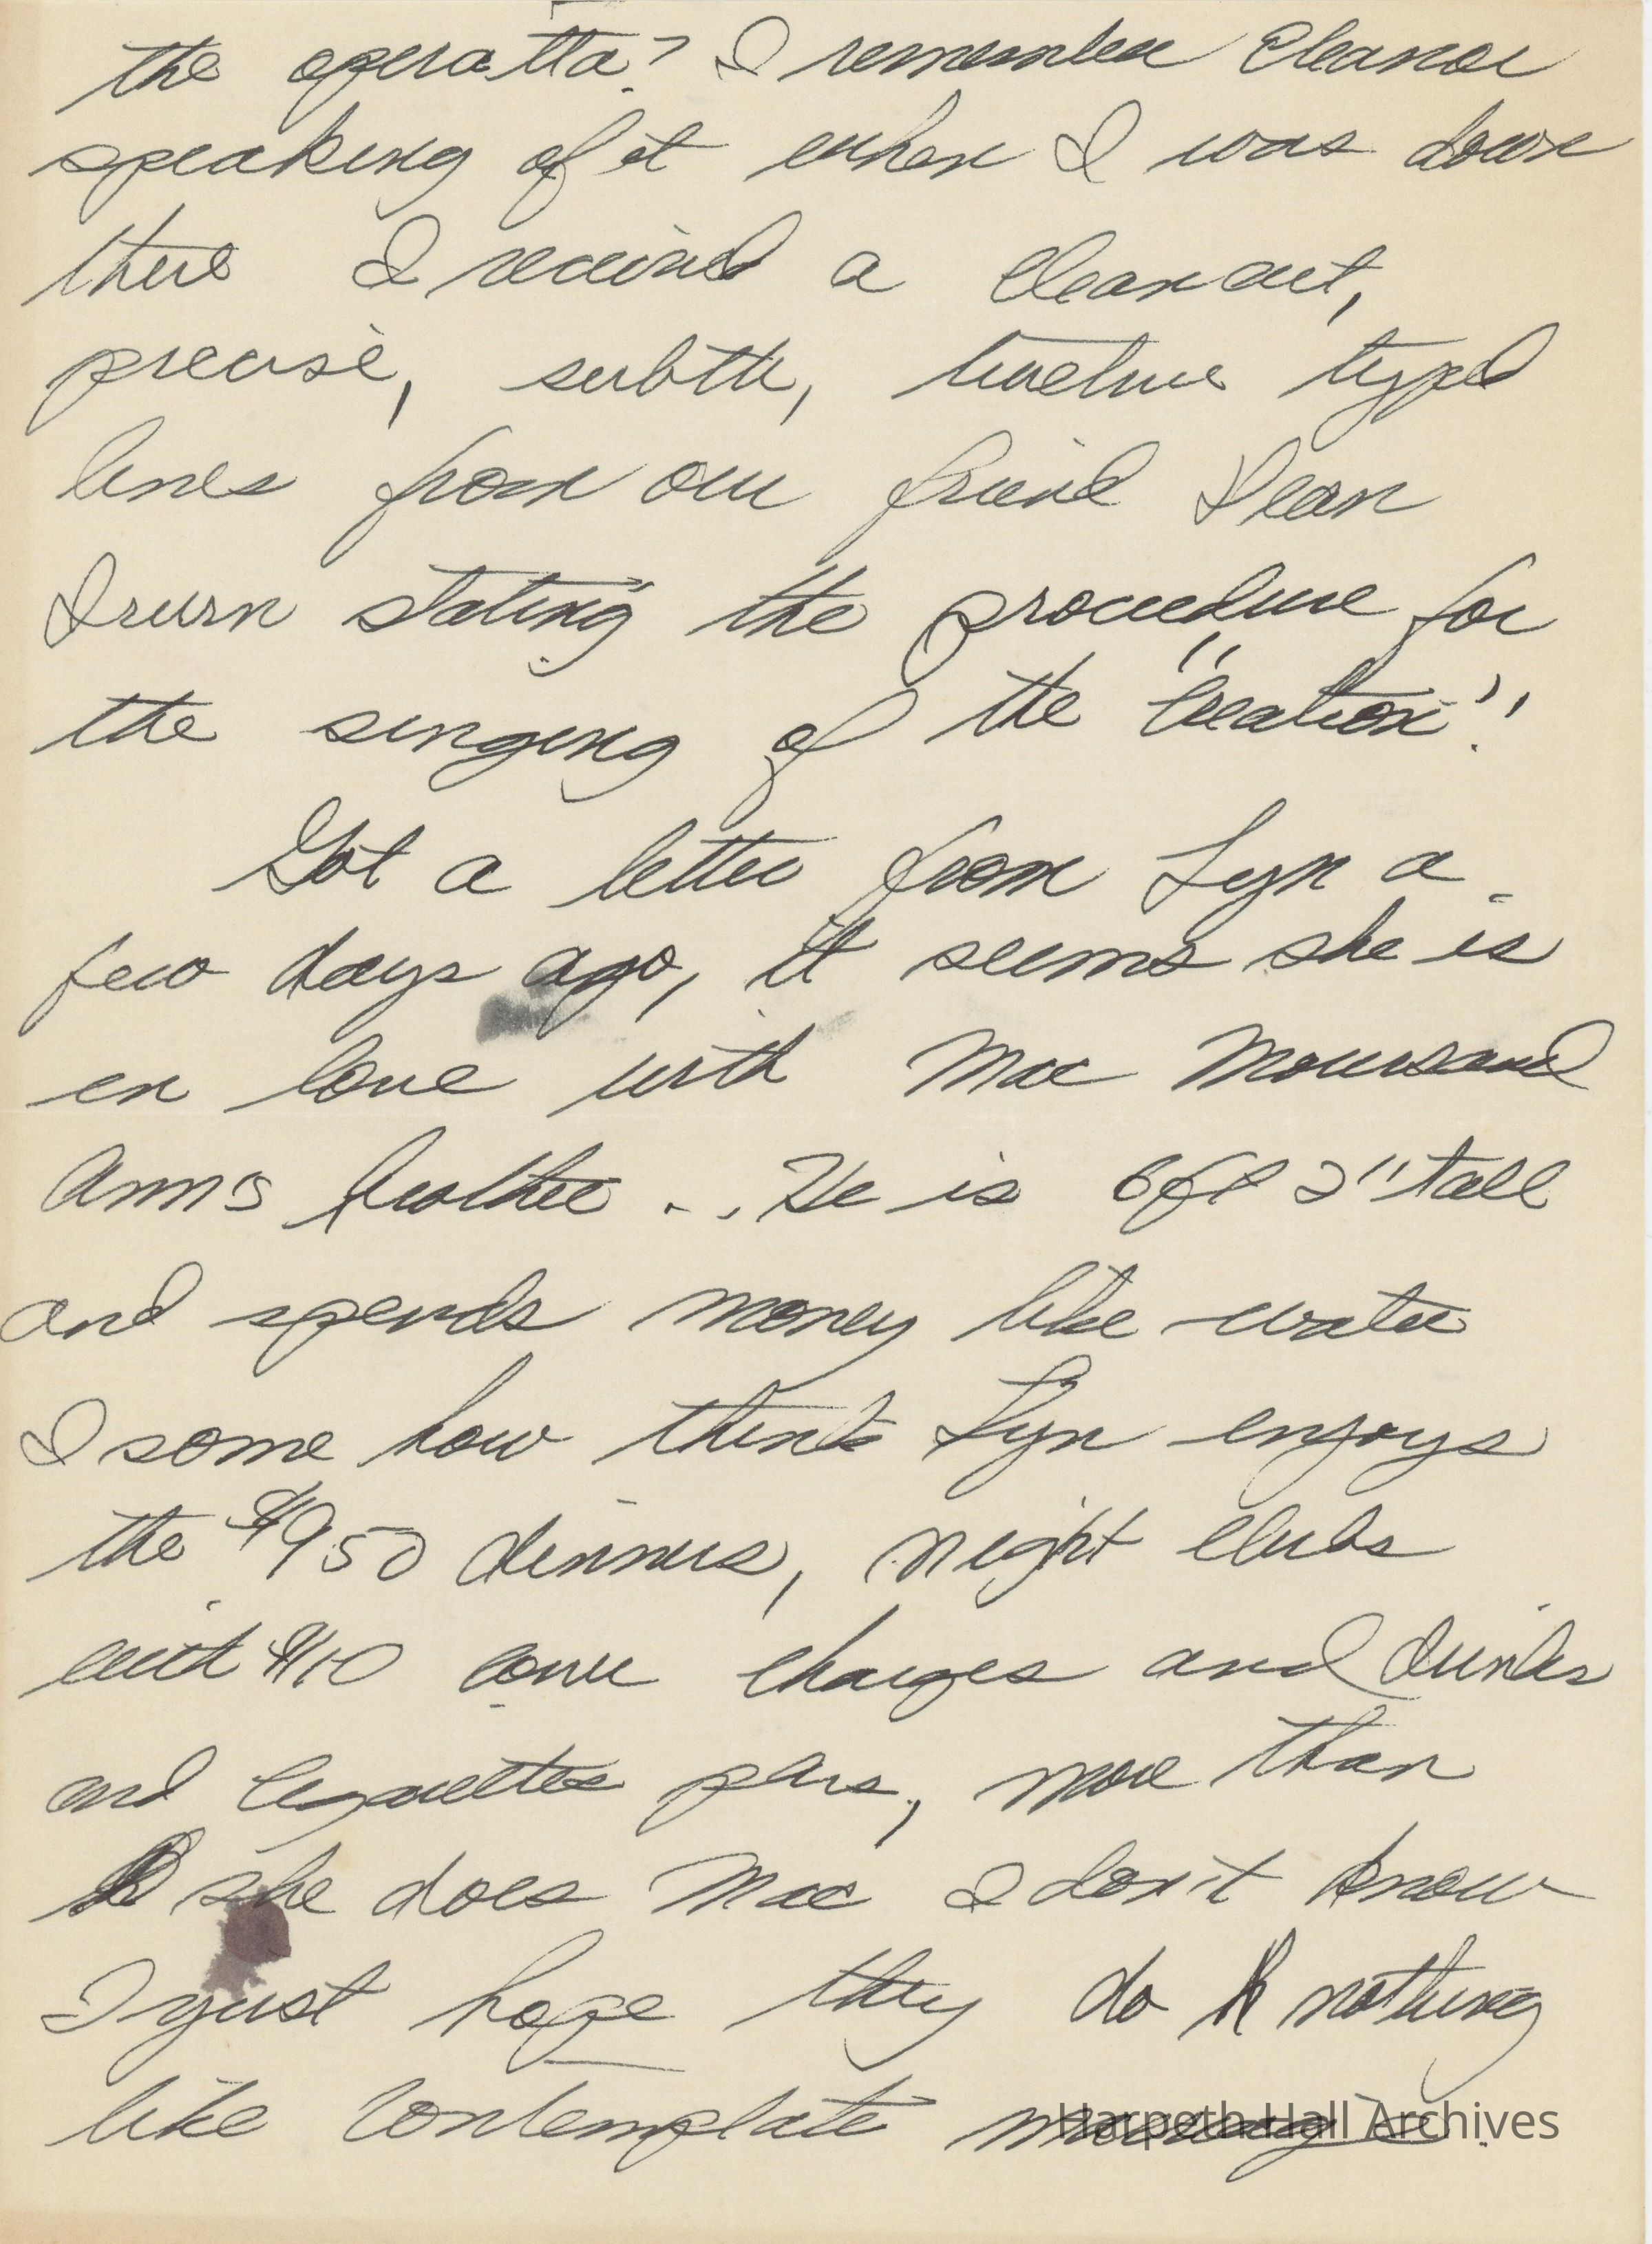 the operatta? I remember Eleanor
speaking of it when I was down
there I received a clear cut,
precise, subtle, twelve typed
lines from our friend Dean
Irwin stating the procedure for
the singing of the "Creation".
Got a letter from Lyn a
few days ago, it seems she is
in love with Mac
Ann's brother... He is 6ft 2" tall
and spends money like water
I some how think Lyn enjoys
the $950 dinners, night clubs
with $10 cover charges and drinks
and cigarettes plus, more than
she does Mac I don't know
I just hope they do nothing
like contemplate marriage.
Harpeth Hall Archives